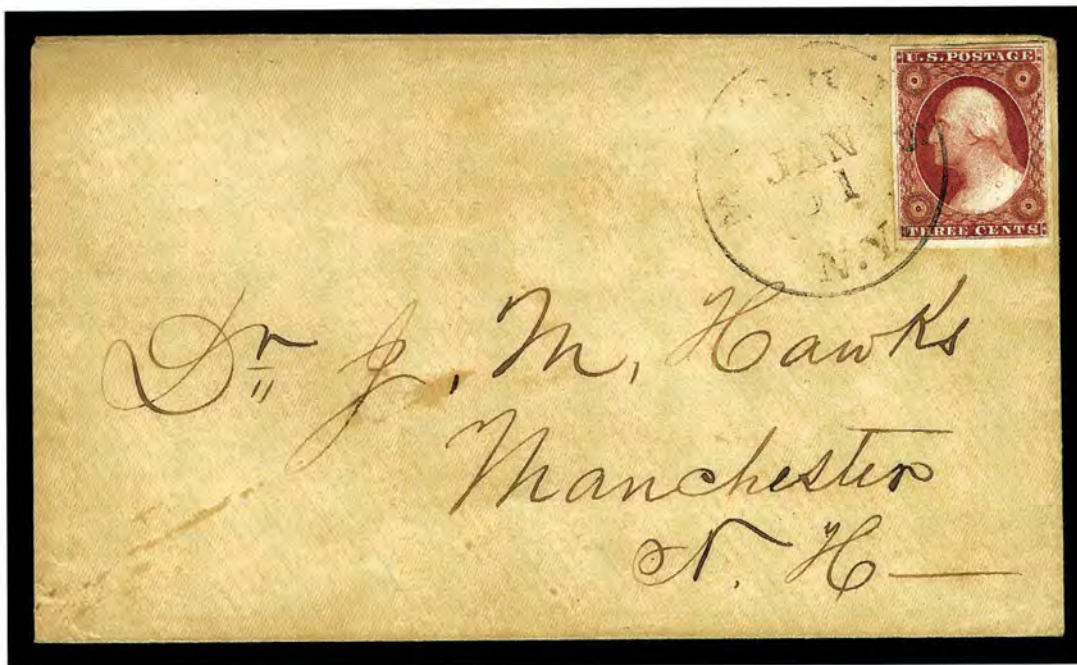 U.S. POSTAGE
THREE CENTS
JAN
N.Y.
Dr J. M. Hawks
Manchester
N. H